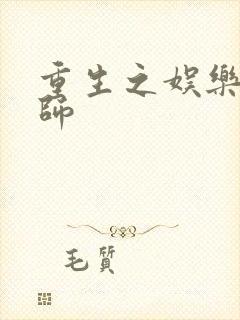 重生之娛樂
師
毛質